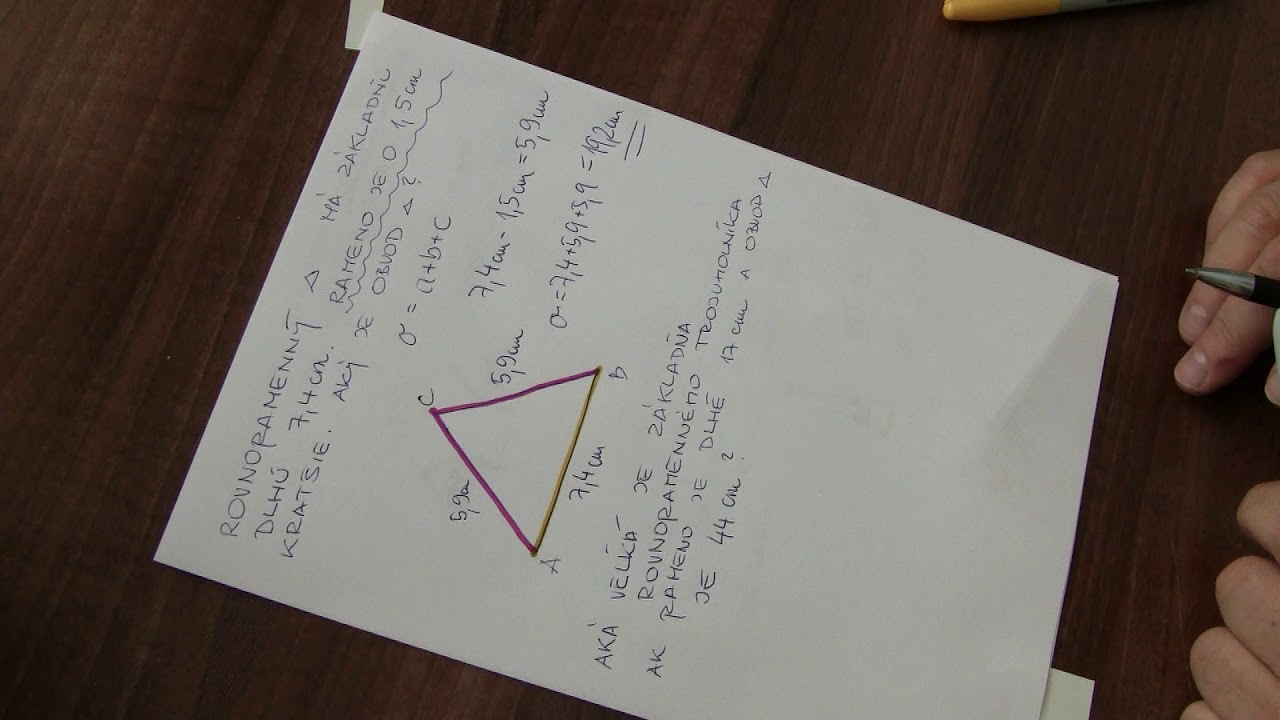 ROVNORAMENNÝ △ MÁ ZÁKLADŇU
DLHÚ 7,4cm. RAMENO JE O 1,5cm
KRATŠIE. AKÝ JE OBVOD △ ?
σ = a+b+c
7,4cm - 1,5cm = 5,9cm
σ = 7,4+5,9+5,9 = 19,2cm
C
5,9cm
5,9cm
B
7,4cm
A
AKÁ VEĽKÁ JE ZÁKLADŇA
ROVNORAMENNÉHO TROJUHOLNÍKA
AK RAMENO JE DLHÉ 17cm A OBVOD △
JE 44cm ?